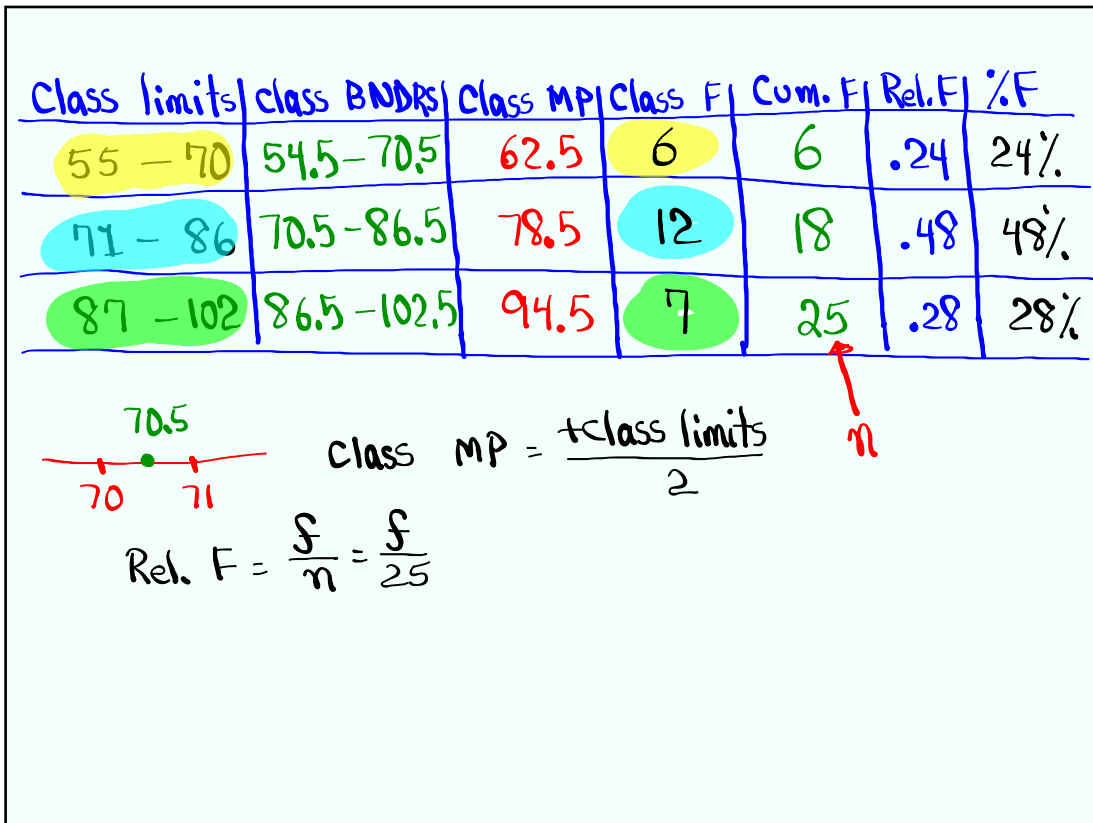 Class limits Class BNDRS Class MP Class F Cum. F Rel. F %F
55 - 70 54.5-70.5 62.5 6 6 .24 24%
71 - 86 70.5-86.5 78.5 12 18 .48 48%
87 - 102 86.5-102.5 94.5 7 25 .28 28%
70.5
70 71
Class MP = +Class limits / 2
n
Rel. F = f/n = f/25